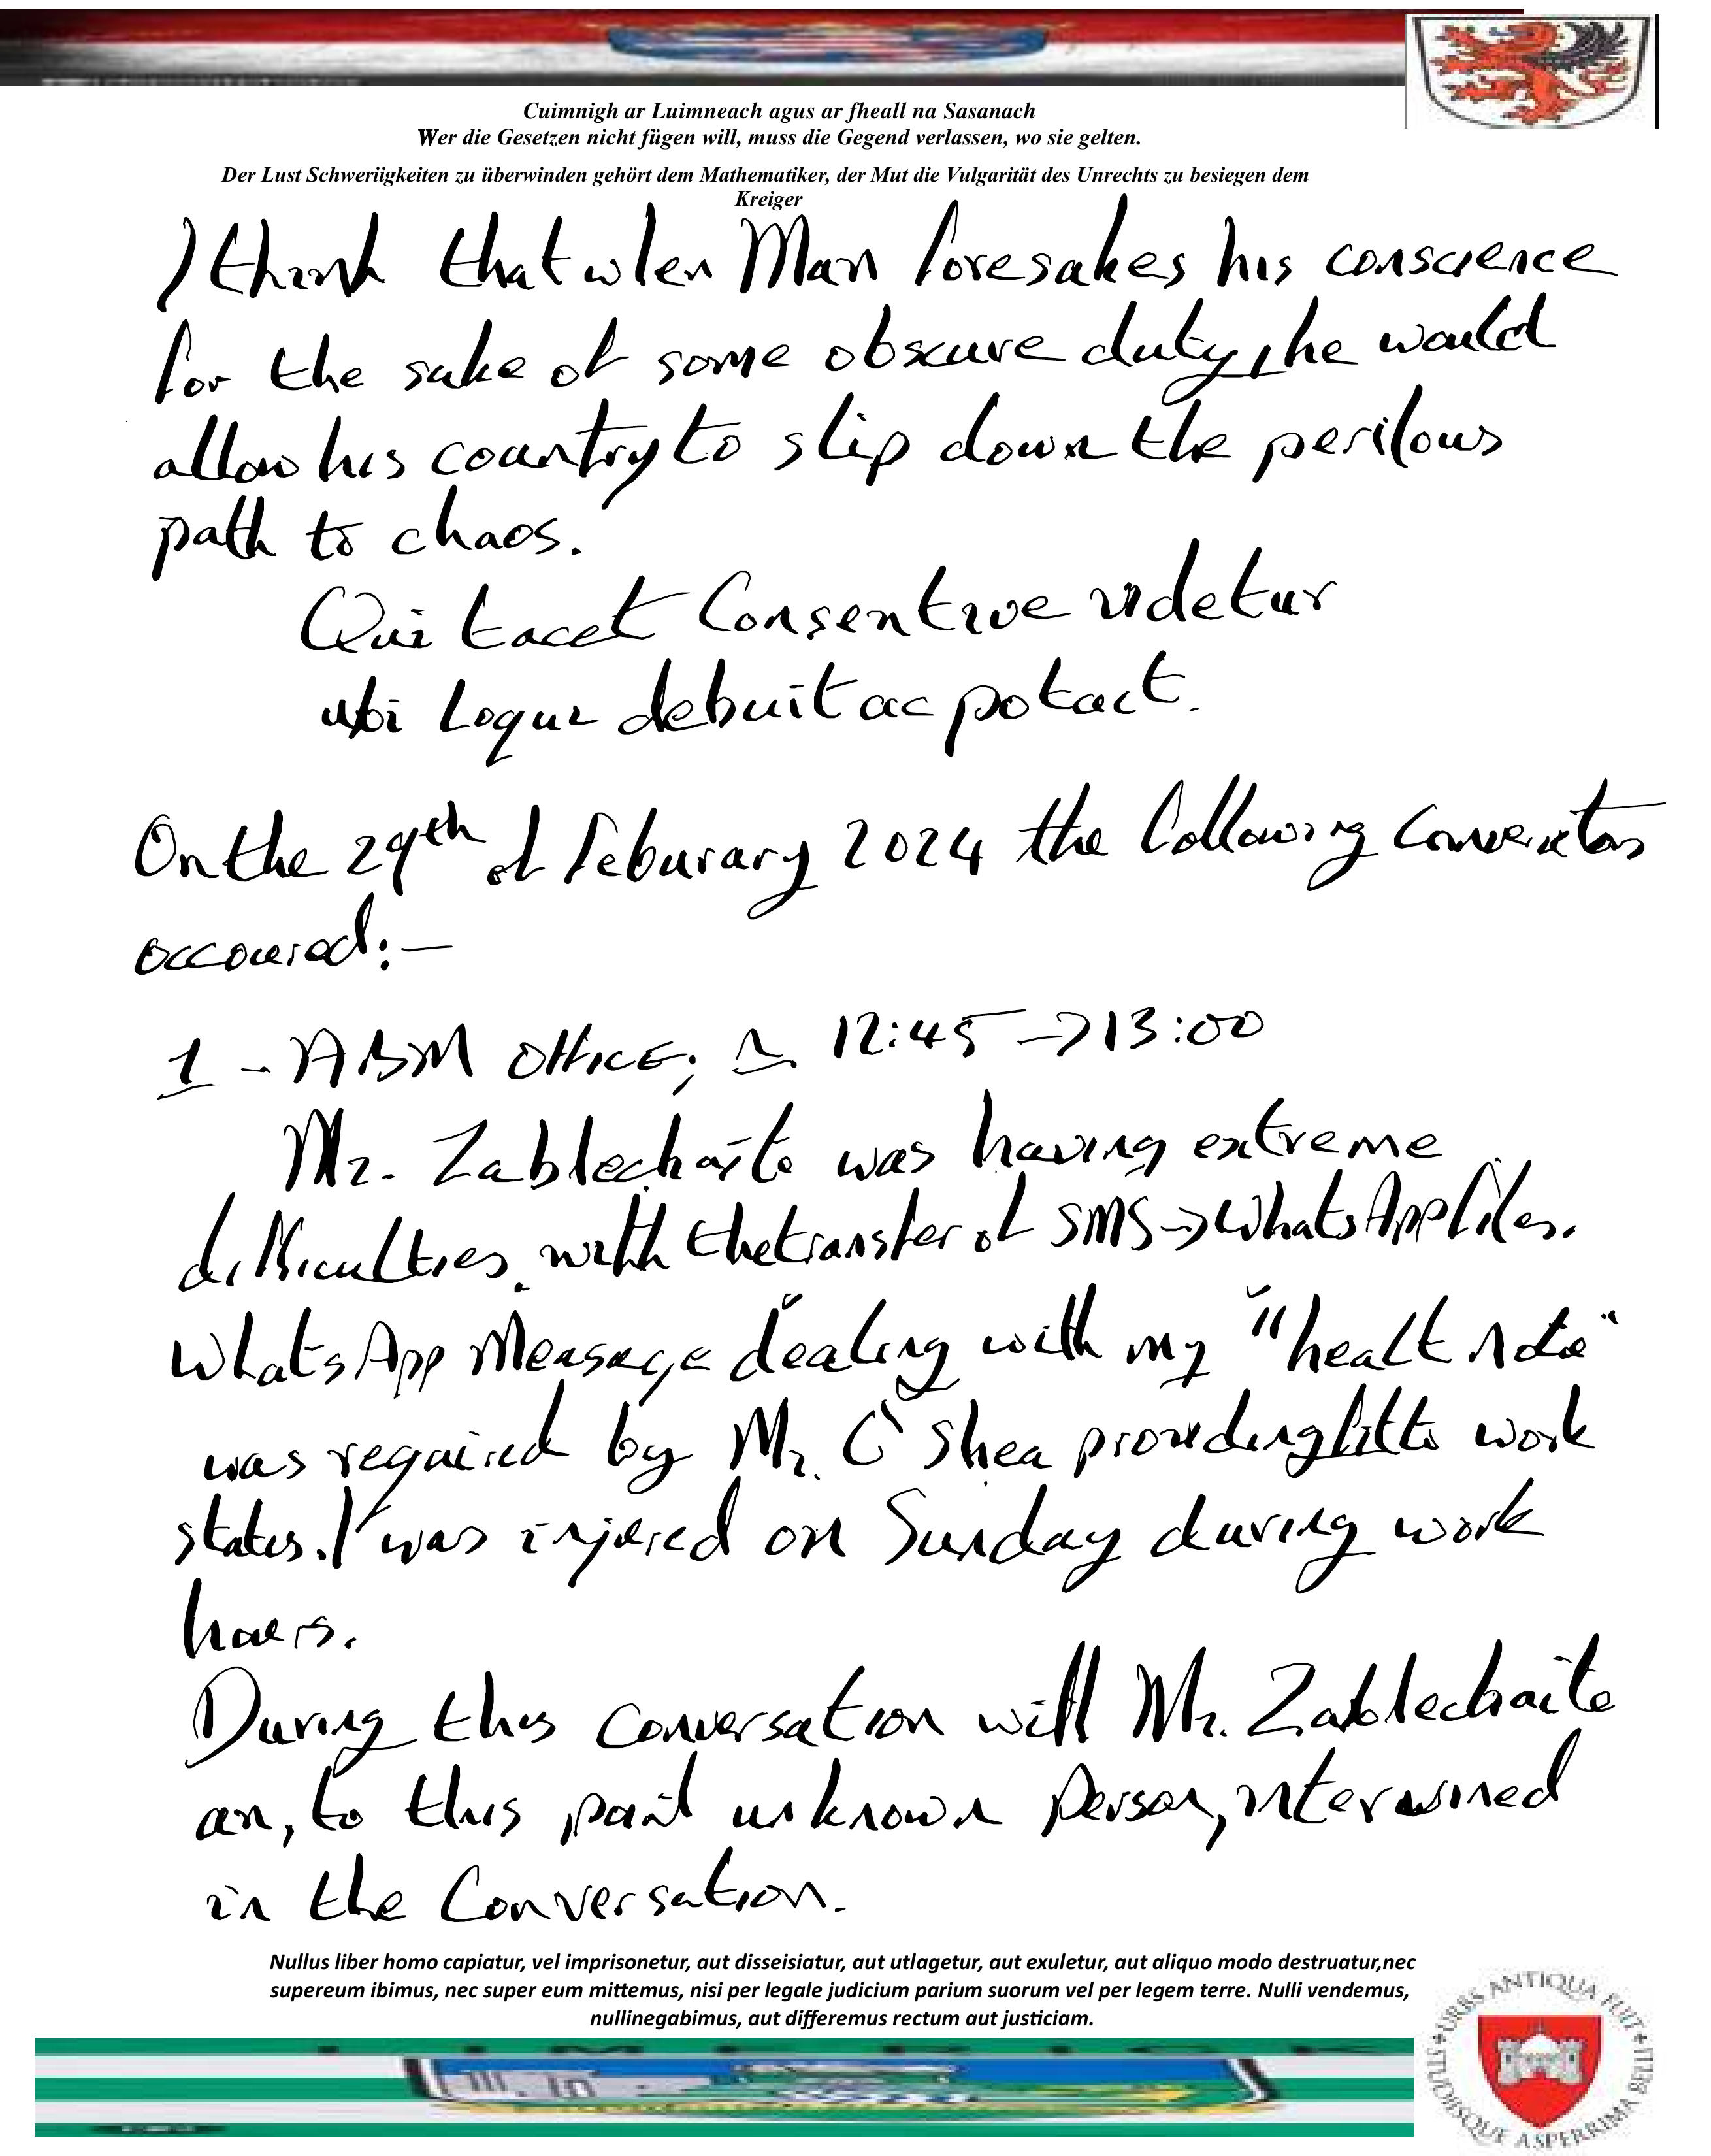 Cuimnigh ar Luimneach agus ar fheall na Sasanach
Wer die Gesetzen nicht fügen will, muss die Gegend verlassen, wo sie gelten.
Der Lust Schweriigkeiten zu überwinden gehört dem Mathematiker, der Mut die Vulgarität des Unrechts zu besiegen dem
Kreiger
I think that when Man foresakes his conscience
for the sake of some obscure duty, he would
allow his country to slip down the perilous
path to chaos.
Qui tacet Consentire videtur
ubi loqui debuit ac potuit.
On the 29th of Feburary 2024 the following
occoured:-
1 - ABM Office; ≃ 12:45 → 13:00
Mr. Zablechaite was having extreme
difficulties with the transfer of SMS → WhatsApp files.
WhatsApp Message dealing with my "healt Note"
was required by Mr. O'Shea providing fit to work
states. I was injured on Sunday during work
hours.
During this conversation with Mr. Zablechaite
an, to this point unknown Person, interwined
in the Conversation.
Nullus liber homo capiatur, vel imprisonetur, aut disseisiatur, aut utlagetur, aut exuletur, aut aliquo modo destruatur,nec
supereum ibimus, nec super eum mittemus, nisi per legale judicium parium suorum vel per legem terre. Nulli vendemus,
nullinegabimus, aut differemus rectum aut justiciam.
URBS ANTIQUA FUIT STUDIISQUE ASPERRIMA BELLI